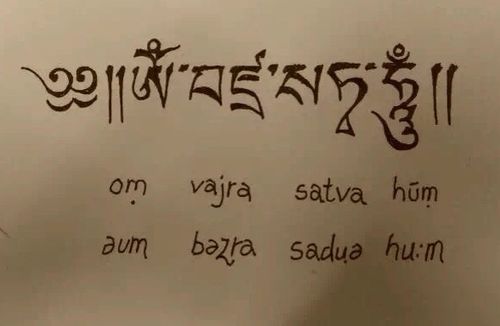 ༄༅།།ༀ་བཛྲ་སཏྭ་ཧཱུྃ།།
oṃ vajra satva hūṃ
aum bəẓra sadṳə hu:m